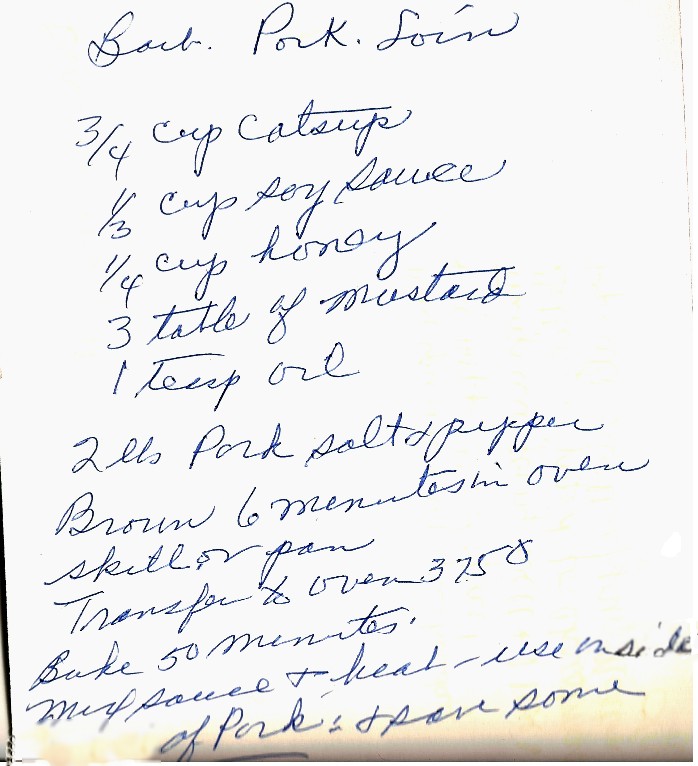 Barb. Pork. Loin
3/4 cup Catsup
1/3 cup soy sauce
1/4 cup honey
3 table of mustard
1 teasp oil
2 lbs Pork salt & pepper
Brown 6 menutes in oven
skill or pan
Transfer to oven 375°
Bake 50 menutes.
Mix sauce + heat - use inside
of Pork: & save some